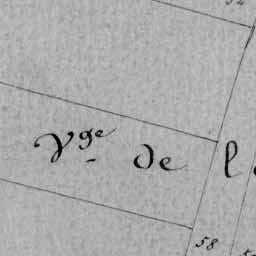 Vge de l
58